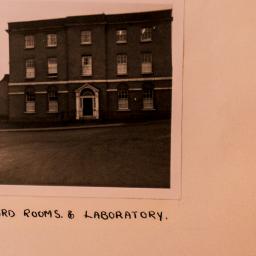 RD ROOMS. & LABORATORY.